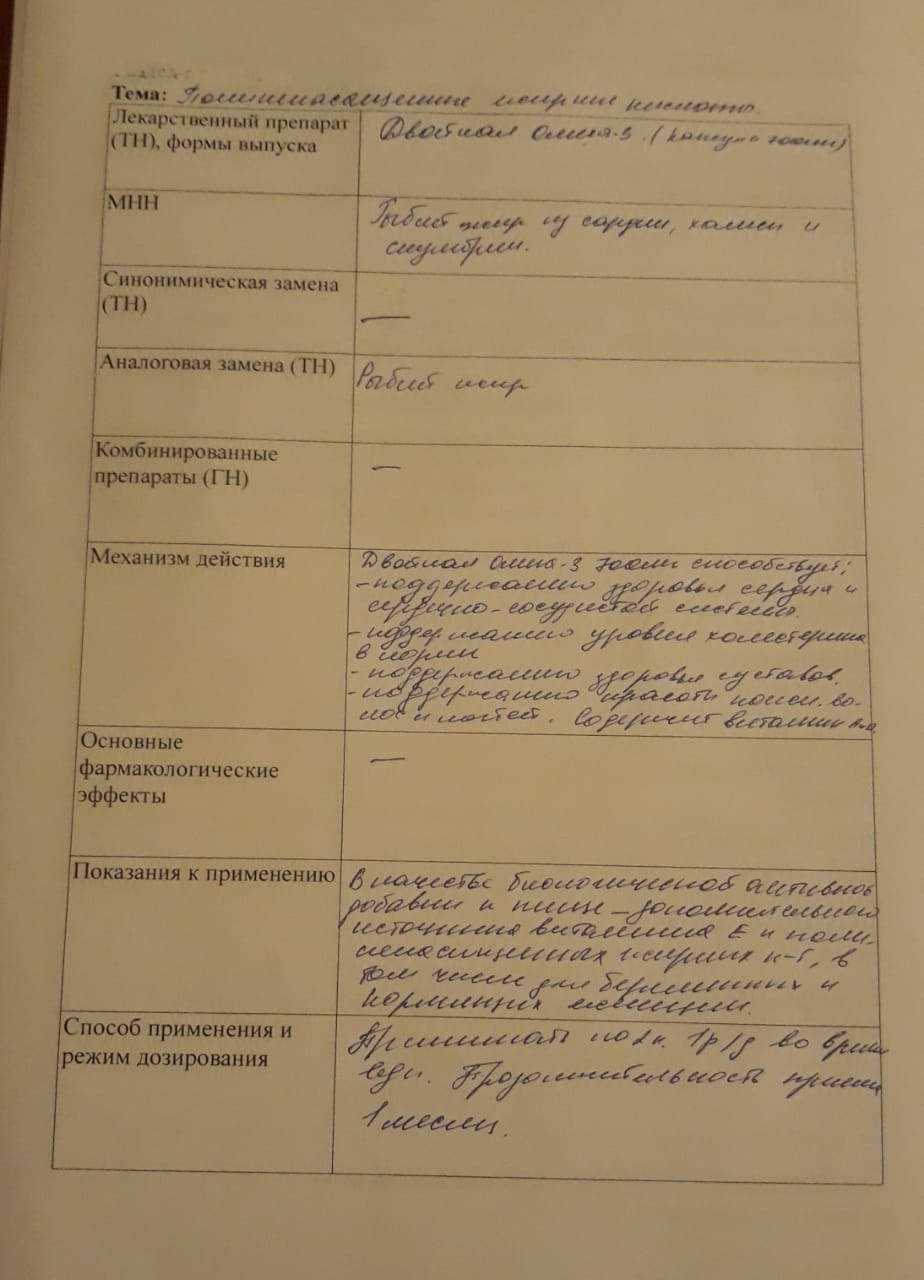 Тема: Полиненасыщенные жирные кислоты.
Лекарственный препарат
(ТН), формы выпуска
Двойная омега-3. (капсулы
МНН
Рыбий жир из сардин, хамсы и
скумбрии.
Синонимическая замена
(ТН)
—
Аналоговая замена (ТН)
Рыбий жир
Комбинированные
препараты (ТН)
—
Механизм действия
Двойная Омега-3 способствует:
-поддержанию здоровья сердца и
сердечно-сосудистой системы.
-поддержанию уровня холестерина
в норме
-поддержанию здоровья суставов.
-поддержанию красоты кожи, во-
лос и ногтей. Содержит витамин
Основные
фармакологические
эффекты
—
Показания к применению
В качестве биологической активной
добавки к пище - дополнительного
источника витамина Е и поли-
ненасыщенных жирных к-т, в
том числе для беременных и
кормящих женщин.
Способ применения и
режим дозирования
Принимать по 2к. 1р/д во время
еды. Продолжительность приема
1 месяц.